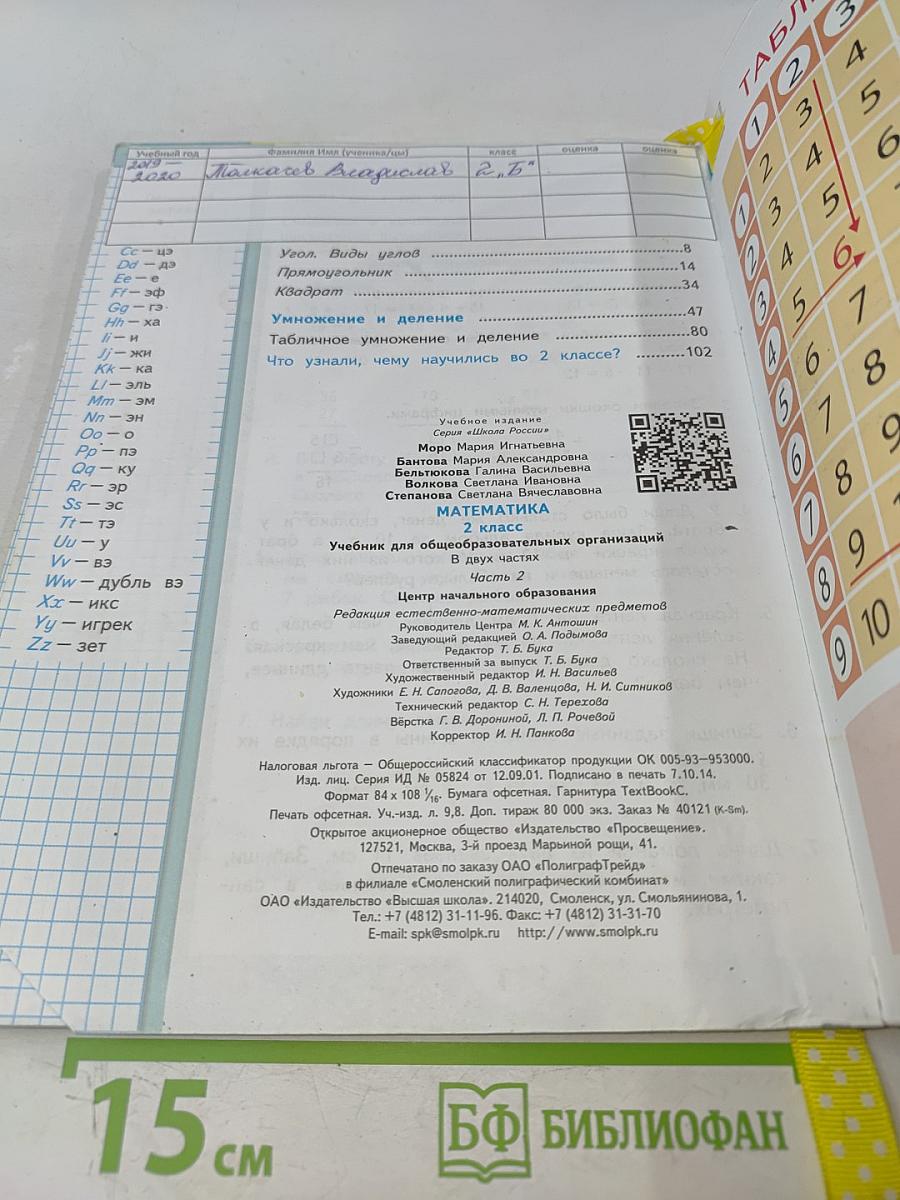 Учебный год Фамилия Имя (ученика/цы) класс оценка оценка
2019 — 2020 Толкачев Владислав 2 „Б“
Cc — цэ
Dd — дэ
Ee — е
Ff — эф
Gg — гэ
Hh — ха
Ii — и
Jj — жи
Kk — ка
Ll — эль
Mm — эм
Nn — эн
Oo — о
Pp — пэ
Qq — ку
Rr — эр
Ss — эс
Tt — тэ
Uu — у
Vv — вэ
Ww — дубль вэ
Xx — икс
Yy — игрек
Zz — зет
Угол. Виды углов ........................................8
Прямоугольник ........................................14
Квадрат ........................................34
Умножение и деление ........................................47
Табличное умножение и деление ....................80
Что узнали, чему научились во 2 классе? ..........102
Учебное издание
Серия «Школа России»
Моро Мария Игнатьевна
Бантова Мария Александровна
Бельтюкова Галина Васильевна
Волкова Светлана Ивановна
Степанова Светлана Вячеславовна
МАТЕМАТИКА
2 класс
Учебник для общеобразовательных организаций
В двух частях
Часть 2
Центр начального образования
Редакция естественно-математических предметов
Руководитель Центра М. К. Антошин
Заведующий редакцией О. А. Подымова
Редактор Т. Б. Бука
Ответственный за выпуск Т. Б. Бука
Художественный редактор И. Н. Васильев
Художники Е. Н. Сапогова, Д. В. Валенцова, Н. И. Ситников
Технический редактор С. Н. Терехова
Вёрстка Г. В. Дорониной, Л. П. Рочевой
Корректор И. Н. Панкова
Налоговая льгота — Общероссийский классификатор продукции ОК 005-93—953000.
Изд. лиц. Серия ИД № 05824 от 12.09.01. Подписано в печать 7.10.14.
Формат 84 x 108 1/16. Бумага офсетная. Гарнитура TextBookC.
Печать офсетная. Уч.-изд. л. 9,8. Доп. тираж 80 000 экз. Заказ № 40121 (K-Sm).
Открытое акционерное общество «Издательство «Просвещение».
127521, Москва, 3-й проезд Марьиной рощи, 41.
Отпечатано по заказу ОАО «ПолиграфТрейд»
в филиале «Смоленский полиграфический комбинат»
ОАО «Издательство «Высшая школа». 214020, Смоленск, ул. Смольянинова, 1.
Тел.: +7 (4812) 31-11-96. Факс: +7 (4812) 31-31-70
E-mail: spk@smolpk.ru http://www.smolpk.ru
1 2 3
1 2 3 4
2 3 4 5
3 4 5 6
4 5 6 7
5 6 7 8
6 7 8 9
7 8 9
8 9
9 10
15 см
БФ БИБЛИОФАН